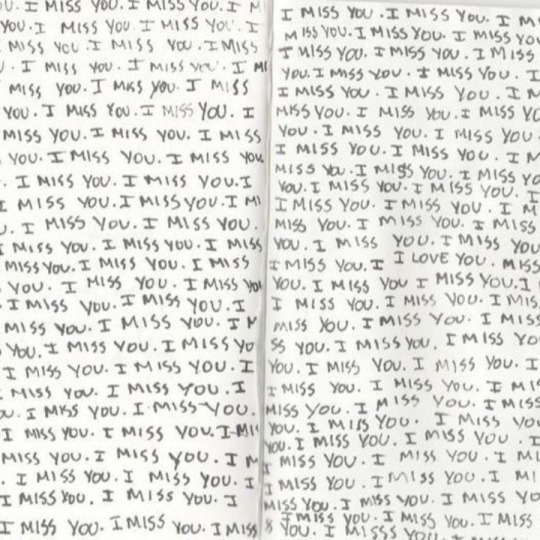 YOU. I MISS YOU. I MISS YOU. I M
YOU. I MISS YOU. I MISS YOU. I
MISS YOU. I MISS YOU. I MISS
. I MISS YOU. I MISS YOU. I MI
MISS YOU. I MISS YOU. I MISS
YOU. I MISS YOU. I MISS YOU. I
MISS YOU. I MISS YOU. I MISS
YOU. I MISS YOU. I MISS YOU
. I MISS YOU. I MISS YOU. I
I MISS YOU. I MISS YOU. I MI
. I MISS YOU. I MISS YOU.
I MISS YOU. I MISS YOU. I MISS
MISS YOU. I MISS YOU. I MISS
YOU. I MISS YOU. I MISS YOU
. I MISS YOU. I MISS YOU. I
MISS YOU. I MISS YOU. I M
YOU. I MISS YOU. I MISS YO
I MISS YOU. I MISS YOU. I
MISS YOU. I MISS YOU. I
. I MISS YOU. I MISS YOU.
I MISS YOU. I MISS YOU. I MI
MISS YOU. I MISS YOU. I M
. I MISS YOU. I MISS YOU. I
I MISS YOU. I MISS YOU. I
I MISS YOU. I MISS YOU. I MISS
I MISS YOU. I MISS YOU. I M
MISS YOU. I MISS YOU. I MISS YOU
I MISS YOU. I MISS YOU. I MISS
YOU. I MISS YOU. I MISS YOU. I
I MISS YOU. I MISS YOU. I M
MISS YOU. I MISS YOU. I MISS YO
YOU. I MISS YOU. I MISS YOU.
I MISS YOU. I MISS YOU. I M
MISS YOU. I MISS YOU. I MISS YO
YOU. I MISS YOU. I MISS YOU. I
I MISS YOU. I MISS YOU. I M
MISS YOU. I MISS YOU. I MISS
YOU. I MISS YOU. I MISS YOU
I MISS YOU. I I LOVE YOU. MISS
YOU. I MISS YOU I MISS YOU. I
I MISS YOU. I MISS YOU. I MIS
MISS YOU. I MISS YOU. I MISS
SS YOU. I MISS YOU. I MISS YO
YOU. I MISS YOU. I MISS YOU.
I MISS YOU. I MISS YOU. I MI
MISS YOU. I MISS YOU. I MISS
YOU. I MISS YOU. I MISS YOU
YOU. I MISS YOU. I MISS YOU. I
MISS YOU. I MISS YOU. I MI
I MISS YOU. I MISS YOU. I MI
MISS YOU. I MISS YOU. I MISS YO
I MISS YOU. I MISS YOU. I MISS
YOU. I MISSS YOU. I MISS